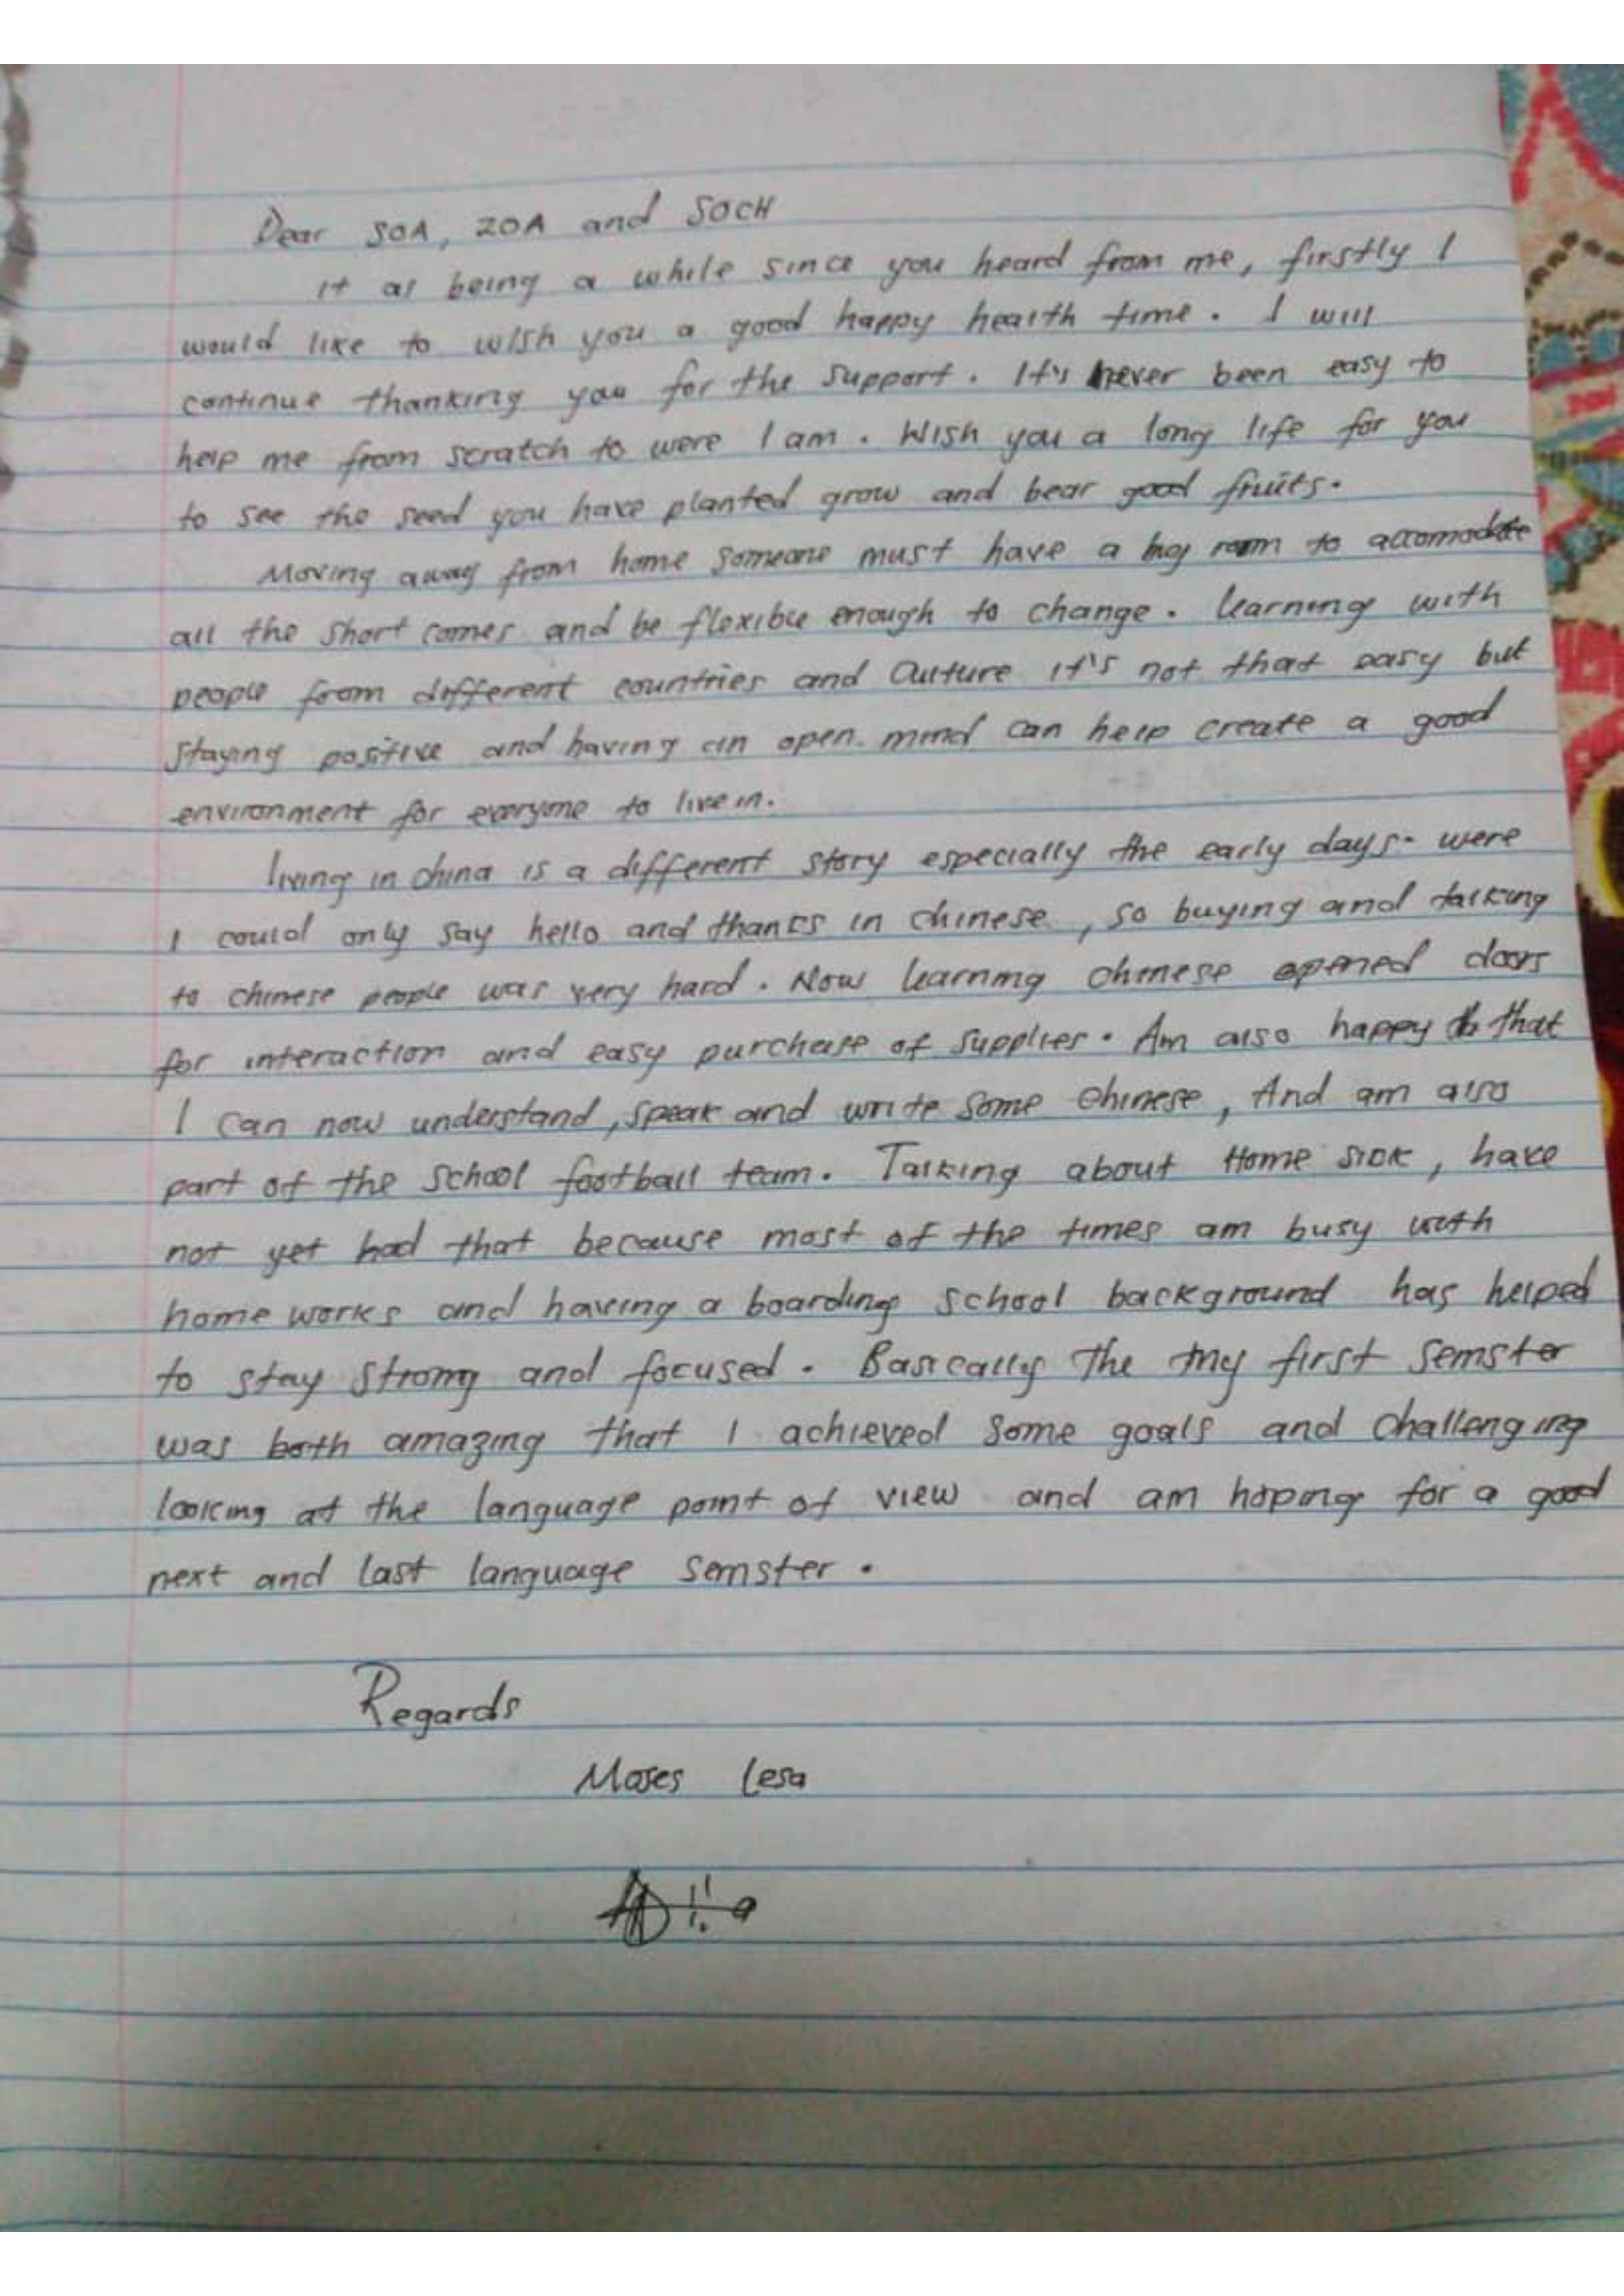 Dear SOA, ZOA and SOCH
It as being a while since you heard from me, firstly I
would like to wish you a good happy health time. I will
continue thanking you for the support. It's never been easy to
help me from scratch to were I am. Wish you a long life for you
to see the seed you have planted grow and bear good fruits.
Moving away from home someone must have a big room to accomodate
all the short comes and be flexible enough to change. learning with
people from different countries and Culture it's not that easy but
staying positive and having an open mind can help create a good
environment for everyone to live in.
living in china is a different story especially the early days. were
I could only say hello and thanks in chinese, so buying and talking
to chinese people was very hard. Now learning chinese opened doors
for interaction and easy purchase of supplies. Am also happy that
I can now understand, speak and write some chinese, And am also
part of the school football team. Talking about Home sick, have
not yet had that because most of the times am busy with
home works and having a boarding school background has helped
to stay strong and focused. Basically the my first semster
was both amazing that I achieved some goals and challenging
looking at the language point of view and am hoping for a good
next and last language semster.
Regards
Moses Lesa